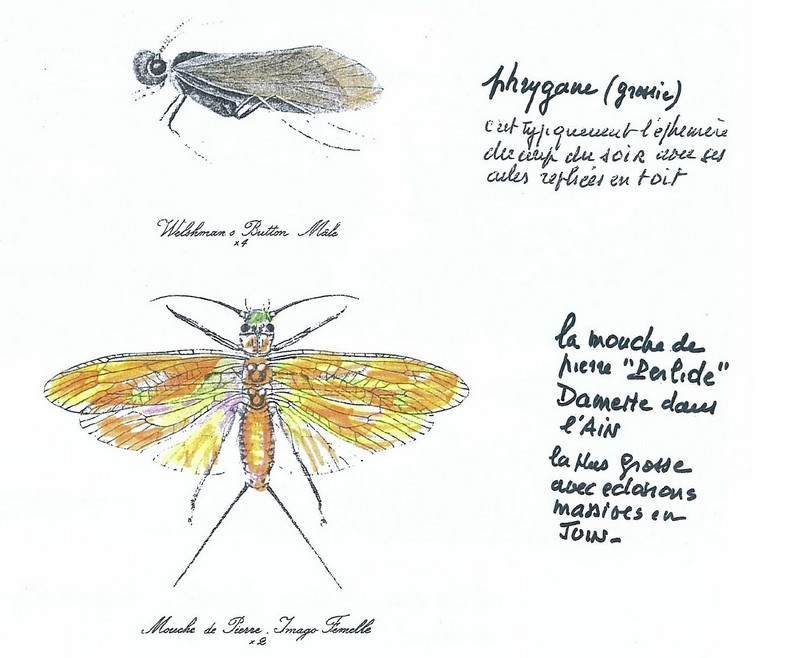 phrygane (grossie)
c'est typiquement l'éphémère
du coup du soir avec ses
ailes repliées en toit
Welshman's Button Mâle
x4
la mouche de
pierre "Perlide"
Damette dans
l'AIN
la plus grosse
avec eclosions
massives en
JUIN-
Mouche de Pierre. Imago Femelle
x2